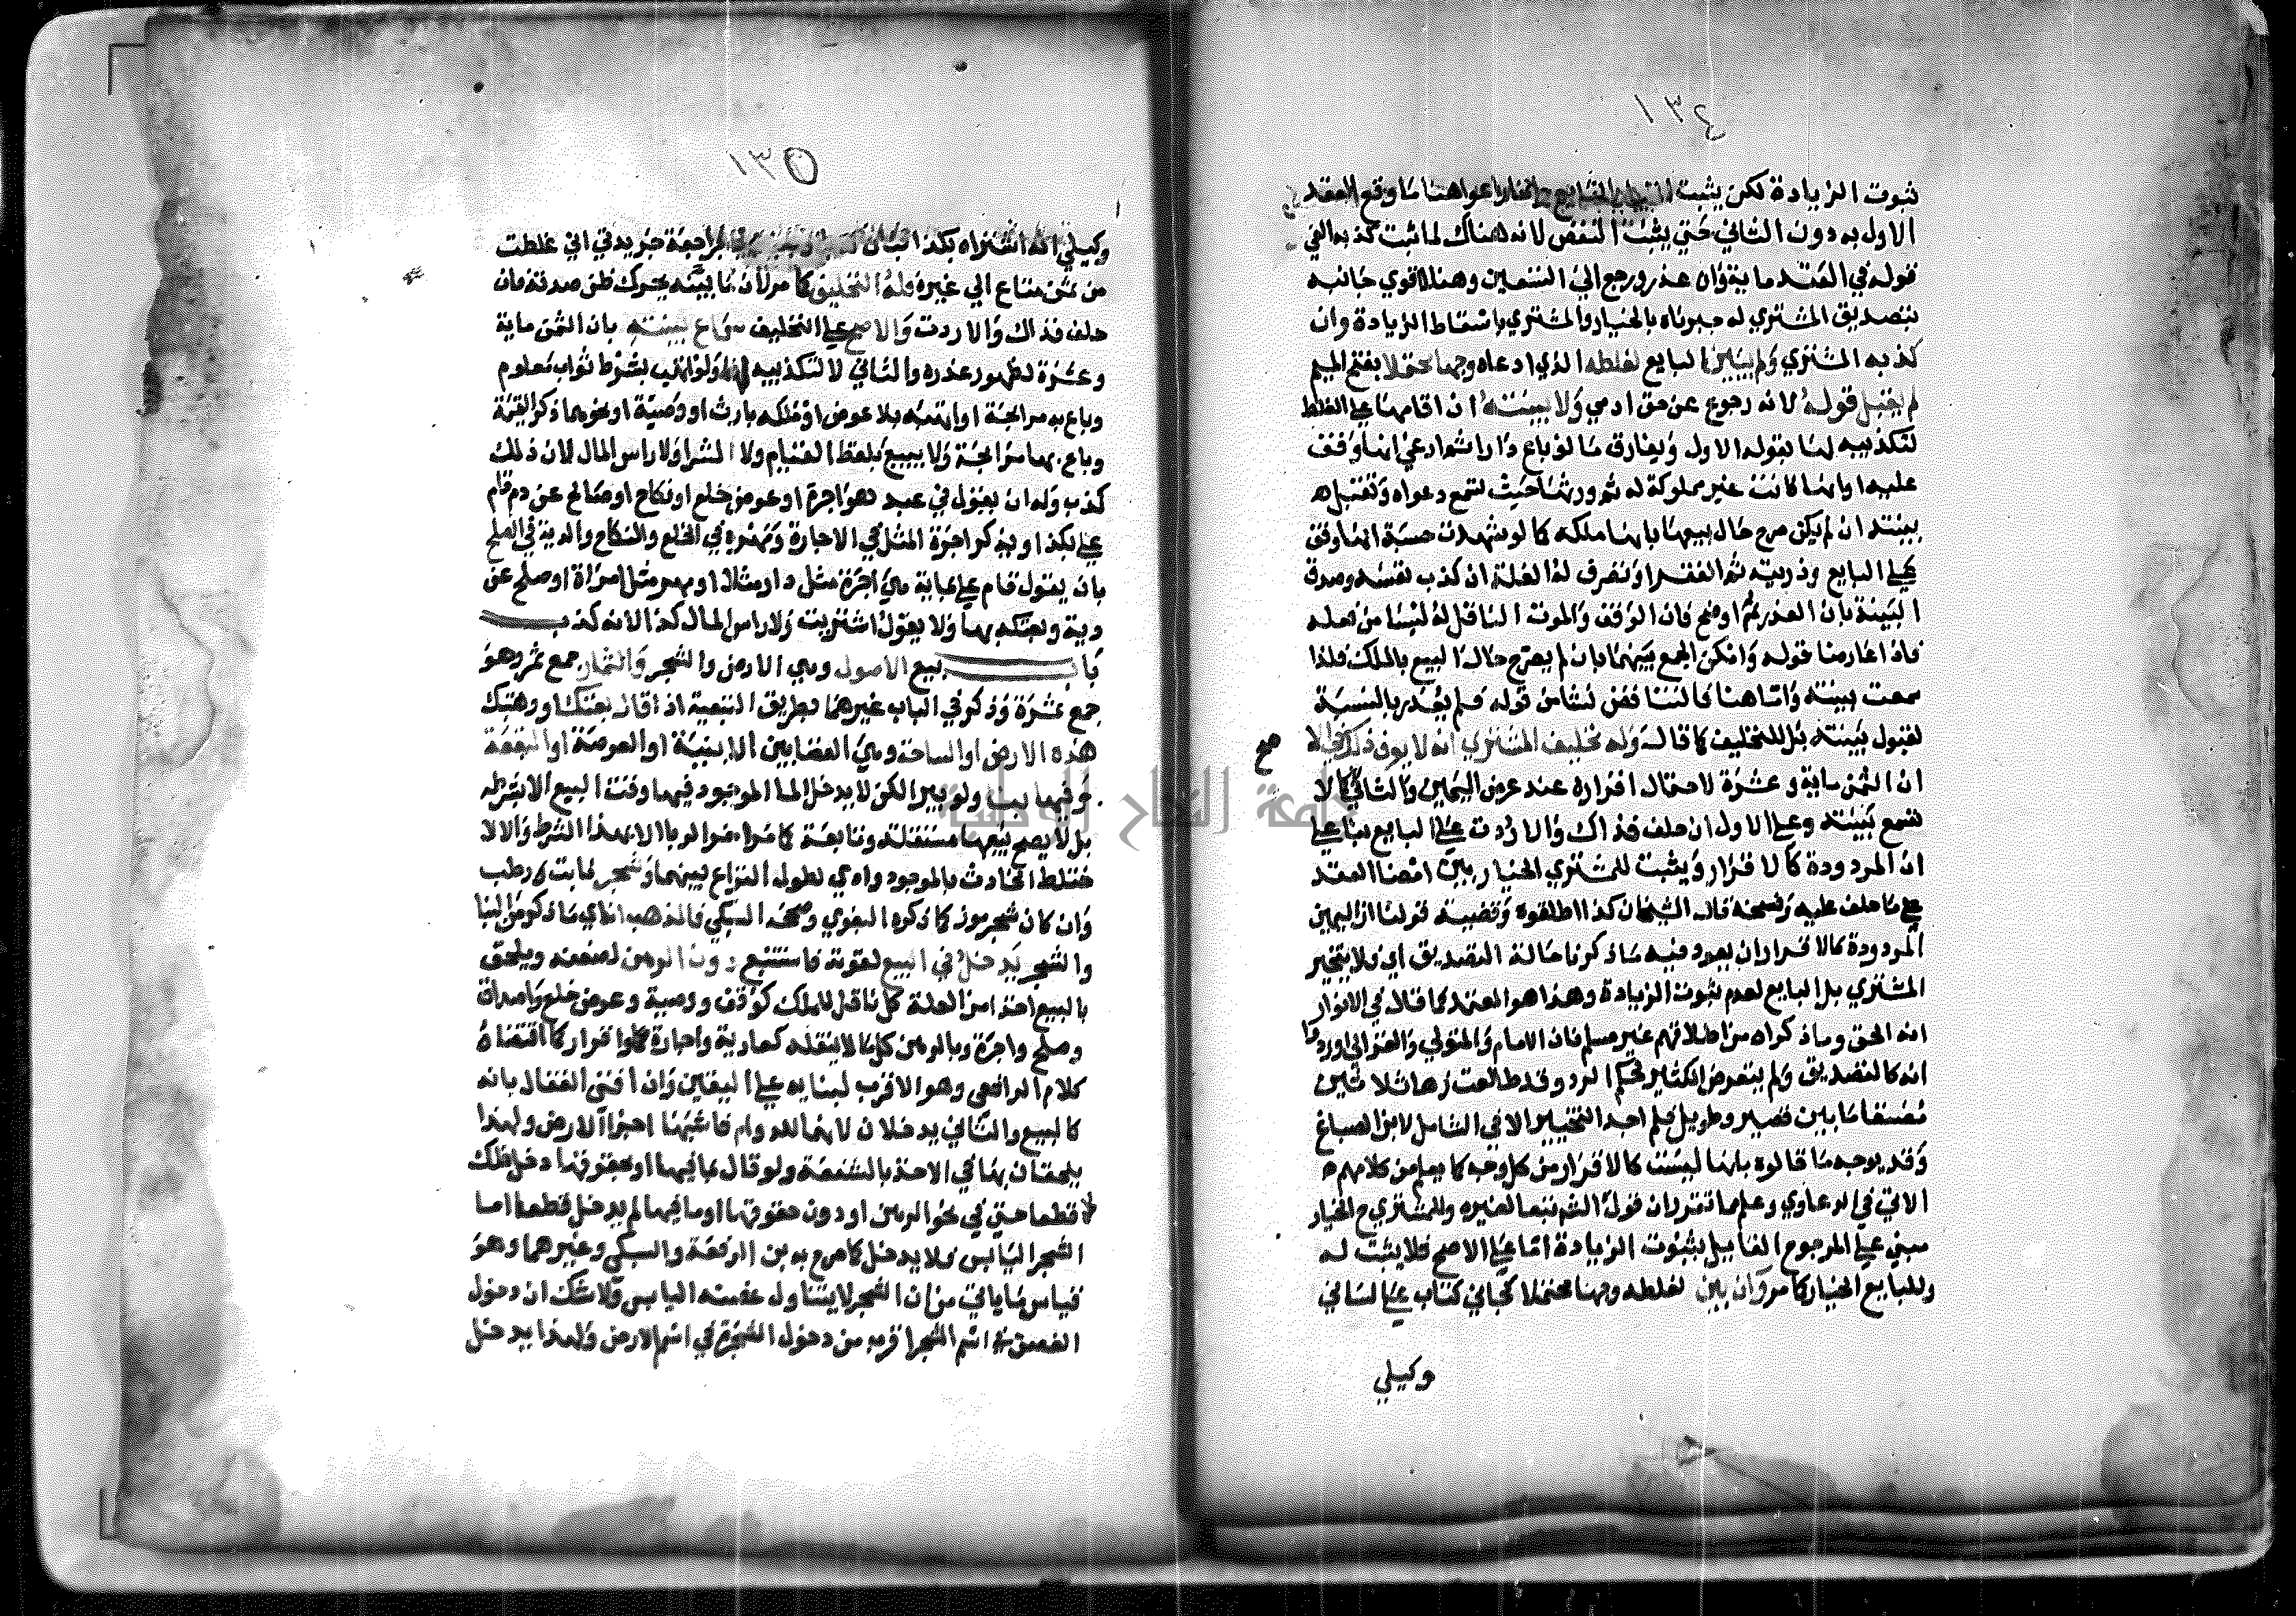 ١٣٤
ثبوت الزيادة لكن يثبت
الاول به دون الثاني حتي يثبت النقض لانه هناك لما ثبت كذبه الغي
قوله في العقد ماية وان عذر ورجع الي التسعين وهنا لما قوي جانبه
بتصديق المشتري له جبرناه بالخيار والمشتري باسقاط الزيادة وان
كذبه المشتري ولم يبين البايع لغلطه الذي ادعاه وجها محتملا بفتح الميم
لم يقبل قوله لانه رجوع عن حق ادمي ولا ببينته ان اقامها علي الغلط
لتكذيبه لها بقوله الاول ويفارق ما لو باع دارا ثم ادعي انها وقف
عليه او انها كانت غير مملوكة له ثم ورثها حيث تسمع دعواه وتقبل
بينته ان لم يكن صرح حال بيعها بانها ملكه كما لو شهدت حسبة انها وقف
علي البايع وذريته ثم الفقرا وتصرف له الغلة ان كذب نفسه وصدق
البينة بان العذر ثم اوضح فان الوقف والموت الناقل له ليسا من فعله
فاذا عارضا قوله وامكن الجمع بينهما بان لم يصرح حال البيع بالملك فلذا
سمعت بينته واما هنا فالتناقض نشا من قوله فلم يعذر بالنسبة
لقبول بينته بل للتحليف كما قال وله تحليف المشتري انه لا يعرف ذلك في الا صح
ان الثمن ماية وعشرة لاحتمال اقراره عند عرض اليمين والثاني كما لا
تسمع بينته وعلي الاول ان حلف فذاك والا ردت علي البايع بنا علي
ان المردودة كالاقرار ويثبت للمشتري الخيار بين امضا العقد
علي ما حلف عليه وفسخه قال الشيخان كذا اطلقوه وقضية قولنا ان اليمين
المردودة كالاقرار ان يعود فيه ما ذكرنا حالة التصديق اي فلا يتخير
المشتري بل البايع لعدم ثبوت الزيادة وهذا هو المعتمد كما قال في الانوار
انه الحق وما ذكراه من اطلاقهم غير مسلم فان الامام والمتولي والغزالي اوردوا
انه كالتصديق ولم يتعرض الكثير لحكم الرد وقد طالعت زها ثلاثين
مصنفا ما بين قصير وطويل فلم اجد التخيير الا في الشامل لابن الصباغ
وقد يوجه ما قالوه بانها ليست كالاقرار من كل وجه كما يعلم من كلامهم
الاتي في الدعاوي وعلم مما تقرر ان قول الشم تبعا لغيره وللمشتري ح الخيار
مبني علي المرجوح القايل بثبوت الزيادة اما علي الاصح فلا يثبت له
وللبايع الخيار كما مر وان بين لغلطه وجها محتملا كجاني كتاب علي لسان
وكيلي
١٣٥
وكيلي انه اشتراه بكذا فبان مراجعة جريدتي اني غلطت
من ثمن متاع الي غيره فله التحليف كما مر لان ما بينه يحرك ظن صدقه فان
حلف فذاك والا ردت والاصح علي التحليف سماع بينته بان الثمن ماية
وعشرة لظهور عذره والثاني لا لتكذيبه لها ولو اتهب بشرط ثواب معلوم
وباع به مرابحة او اتهبه بلا عوض او ملكه بارث او وصية او نحوهما ذكر القيمة
وباع بها مرابحة ولا يبيع بلفظ القيام ولا الشرا ولا راس المال لان ذلك
كذب وله ان يقول في عبد هو اجرة او عوض خلع او نكاح او صالح عن دم قام
علي بكذا او يذكر اجرة المثل في الاجارة ومهره في الخلع والنكاح والدية في الصلح
بان يقول قام علي بماية وهي اجرة مثل دار مثلا او مهر مثل امراة او صلح عن
دية وبعتكه بها ولا يقول اشتريت ولا راس المال كذا لانه كذب
باب بيع الاصول وهي الارض والشجر والثمار جمع ثمر وهو
جمع ثمرة وذكر في الباب غيرهما بطريق التبعية اذا قال بعتك او وهبتك
هذه الارض او الساحة وهي الفضا بين الابنية او العرصة او البقعة
وفيها بنا ولو بيرا لكن لا يدخل الما الموجود فيها وقت البيع الا بشرطه
بل لا يصح بيعها مستقلة وتابعة كما مر اخر الربا الا بهذا الشرط والا لا
ختلط الحادث بالموجود وادي لطول النزاع بينهما وشجر ثابت رطب
وان كان شجر موز كما ذكره البغوي وصححه السبكي فالمذهب انه ذكر من البنا
والشجر يدخل في البيع لقوته فاستتبع دون الرهن لضعفه ويلحق
بالبيع اخذا من العلة كل ناقل للملك كوقف ووصية وعوض خلع واصداق
وصلح واجرة وبالرهن كل ما لا ينقله كعارية واجارة واقرار كما اقتضاه
كلام الرافعي وهو الاقرب لبنايه علي اليقين وان افتي القفال بانه
كالبيع والثاني يدخلان لانهما للدوام فاشبها اجزا الارض ولهذا
يلحقان بها في الاخذ بالشفعة ولو قال بما فيها او بحقوقها دخل ذلك
قطعا حتي في نحو الرهن او دون حقوقها او ما فيها لم يدخل قطعا اما
الشجر اليابس فلا يدخل كما صرح به بن الرفعة والسبكي وغيرهما وهو
قياس ما ياتي من ان الشجر لا يتناول غصنه اليابس ولا شك ان دخول
الغصن في اسم الشجر اقرب من دخول الشجرة في اسم الارض ولهذا يدخل
جامعة النجاح الوطنية